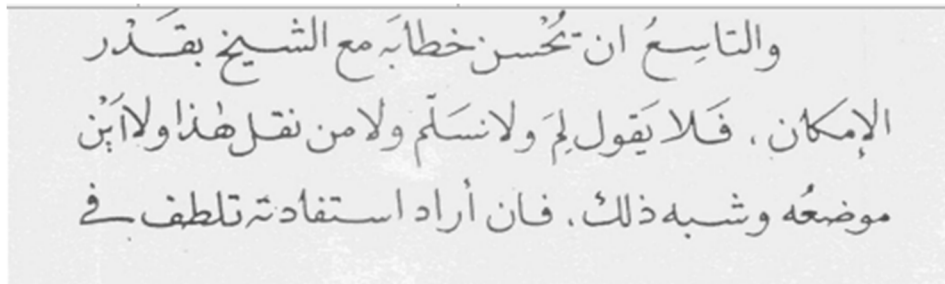 والتاسِعُ ان يُحْسن خطابَه مع الشيخ بقَدْر
الإمكان، فَلا يَقول لِمَ ولا نسَلّم ولا من نقل هٰذا ولا اَيْن
موضعُه وشبه ذلك، فان أراد استفادته تلطف في